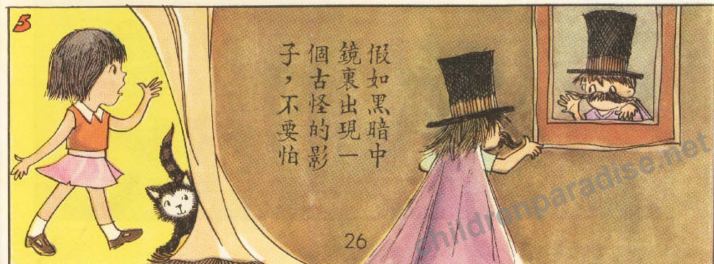 5
假如黑暗中
鏡裏出現一
個古怪的影
子，不要怕
26
childrenparadise.net